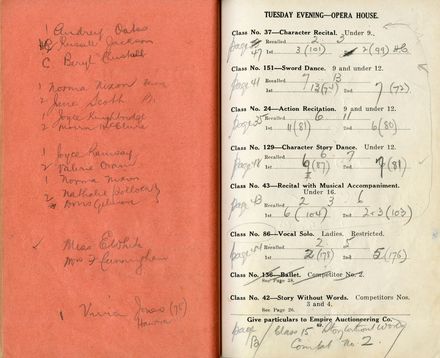 1 Audrey Oates
HC Russell Jackson
C Beryl
1 Norma Nixon
2 June Scott
1 Joyce
2
1 Joyce Ramsay
2 Valerie
1 Norma Nixon
2 Nathalie
Doris Gilman
Miss E White
Mrs F Cunningham
1 Vivia Jones (75)
Hawera
TUESDAY EVENING—OPERA HOUSE.
Class No. 37—Character Recital. Under 9.
page 47 Recalled 2 3
1st 3 (101) 2 (99) HC
Class No. 151—Sword Dance. 9 and under 12.
page 41 Recalled 7 13
1st 13 (74) 7 (72)
Class No. 24—Action Recitation. 9 and under 12.
page 35 Recalled 6 11
1st 11 (81) 6 (80)
Class No. 129—Character Story Dance. 9 and under 12.
page 48 Recalled 6 7
1st (87) 7 (81)
Class No. 43—Recital with Musical Accompaniment.
Under 16.
page 43 Recalled 2 3 6
1st 6 (104) 2+3 (103)
Class No. 86—Vocal Solo. Ladies. Restricted.
page Recalled 2 5
1st 2 (178) 5 (176)
Class No. 136—Ballet. Competitor No. 2.
See Page 28.
Class No. 42—Story Without Words. Competitors Nos.
3 and 4.
See Page 26.
Give particulars to Empire Auctioneering Co.
page 13 Class 15 Story without Words
Compet No 2.